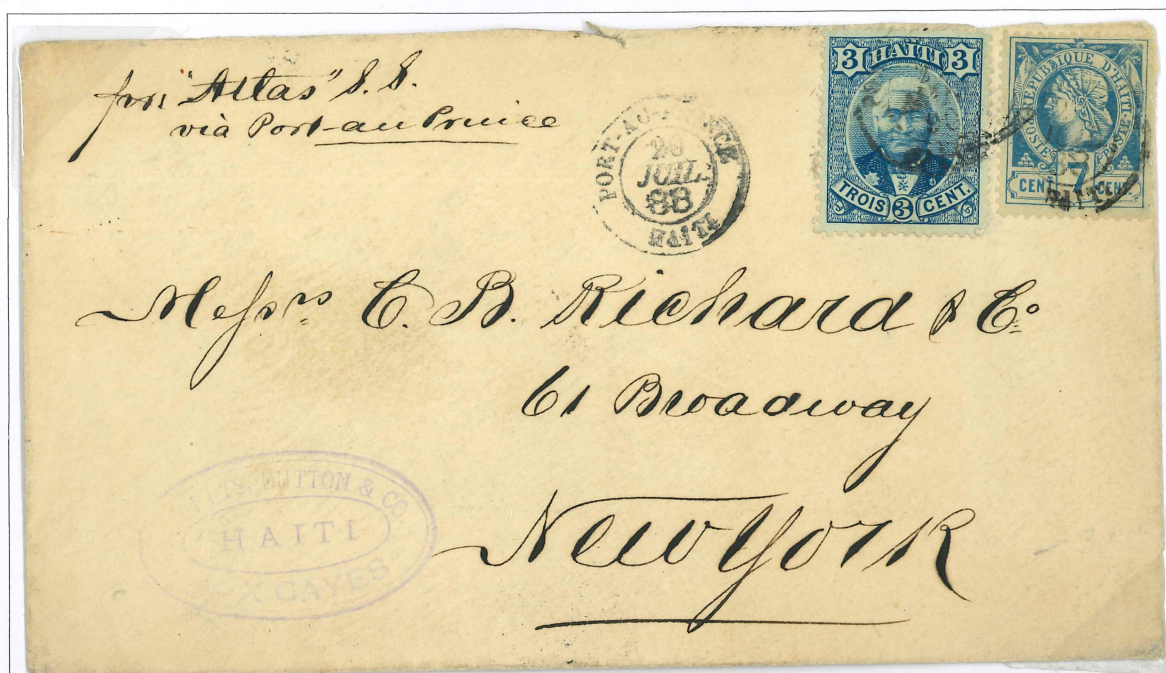 per "Atlas" S.S.
via Port-au Prince
PORT-AU-PRINCE
JUIL.
88
HAITI
3 HAITI 3
TROIS 3 CENT.
REPUBLIQUE D'HAITI
POSTE
CENT 7 CENT
Messrs C. B. Richard & Co
61 Broadway
New York
DUTTON & CO
HAITI
CAYES